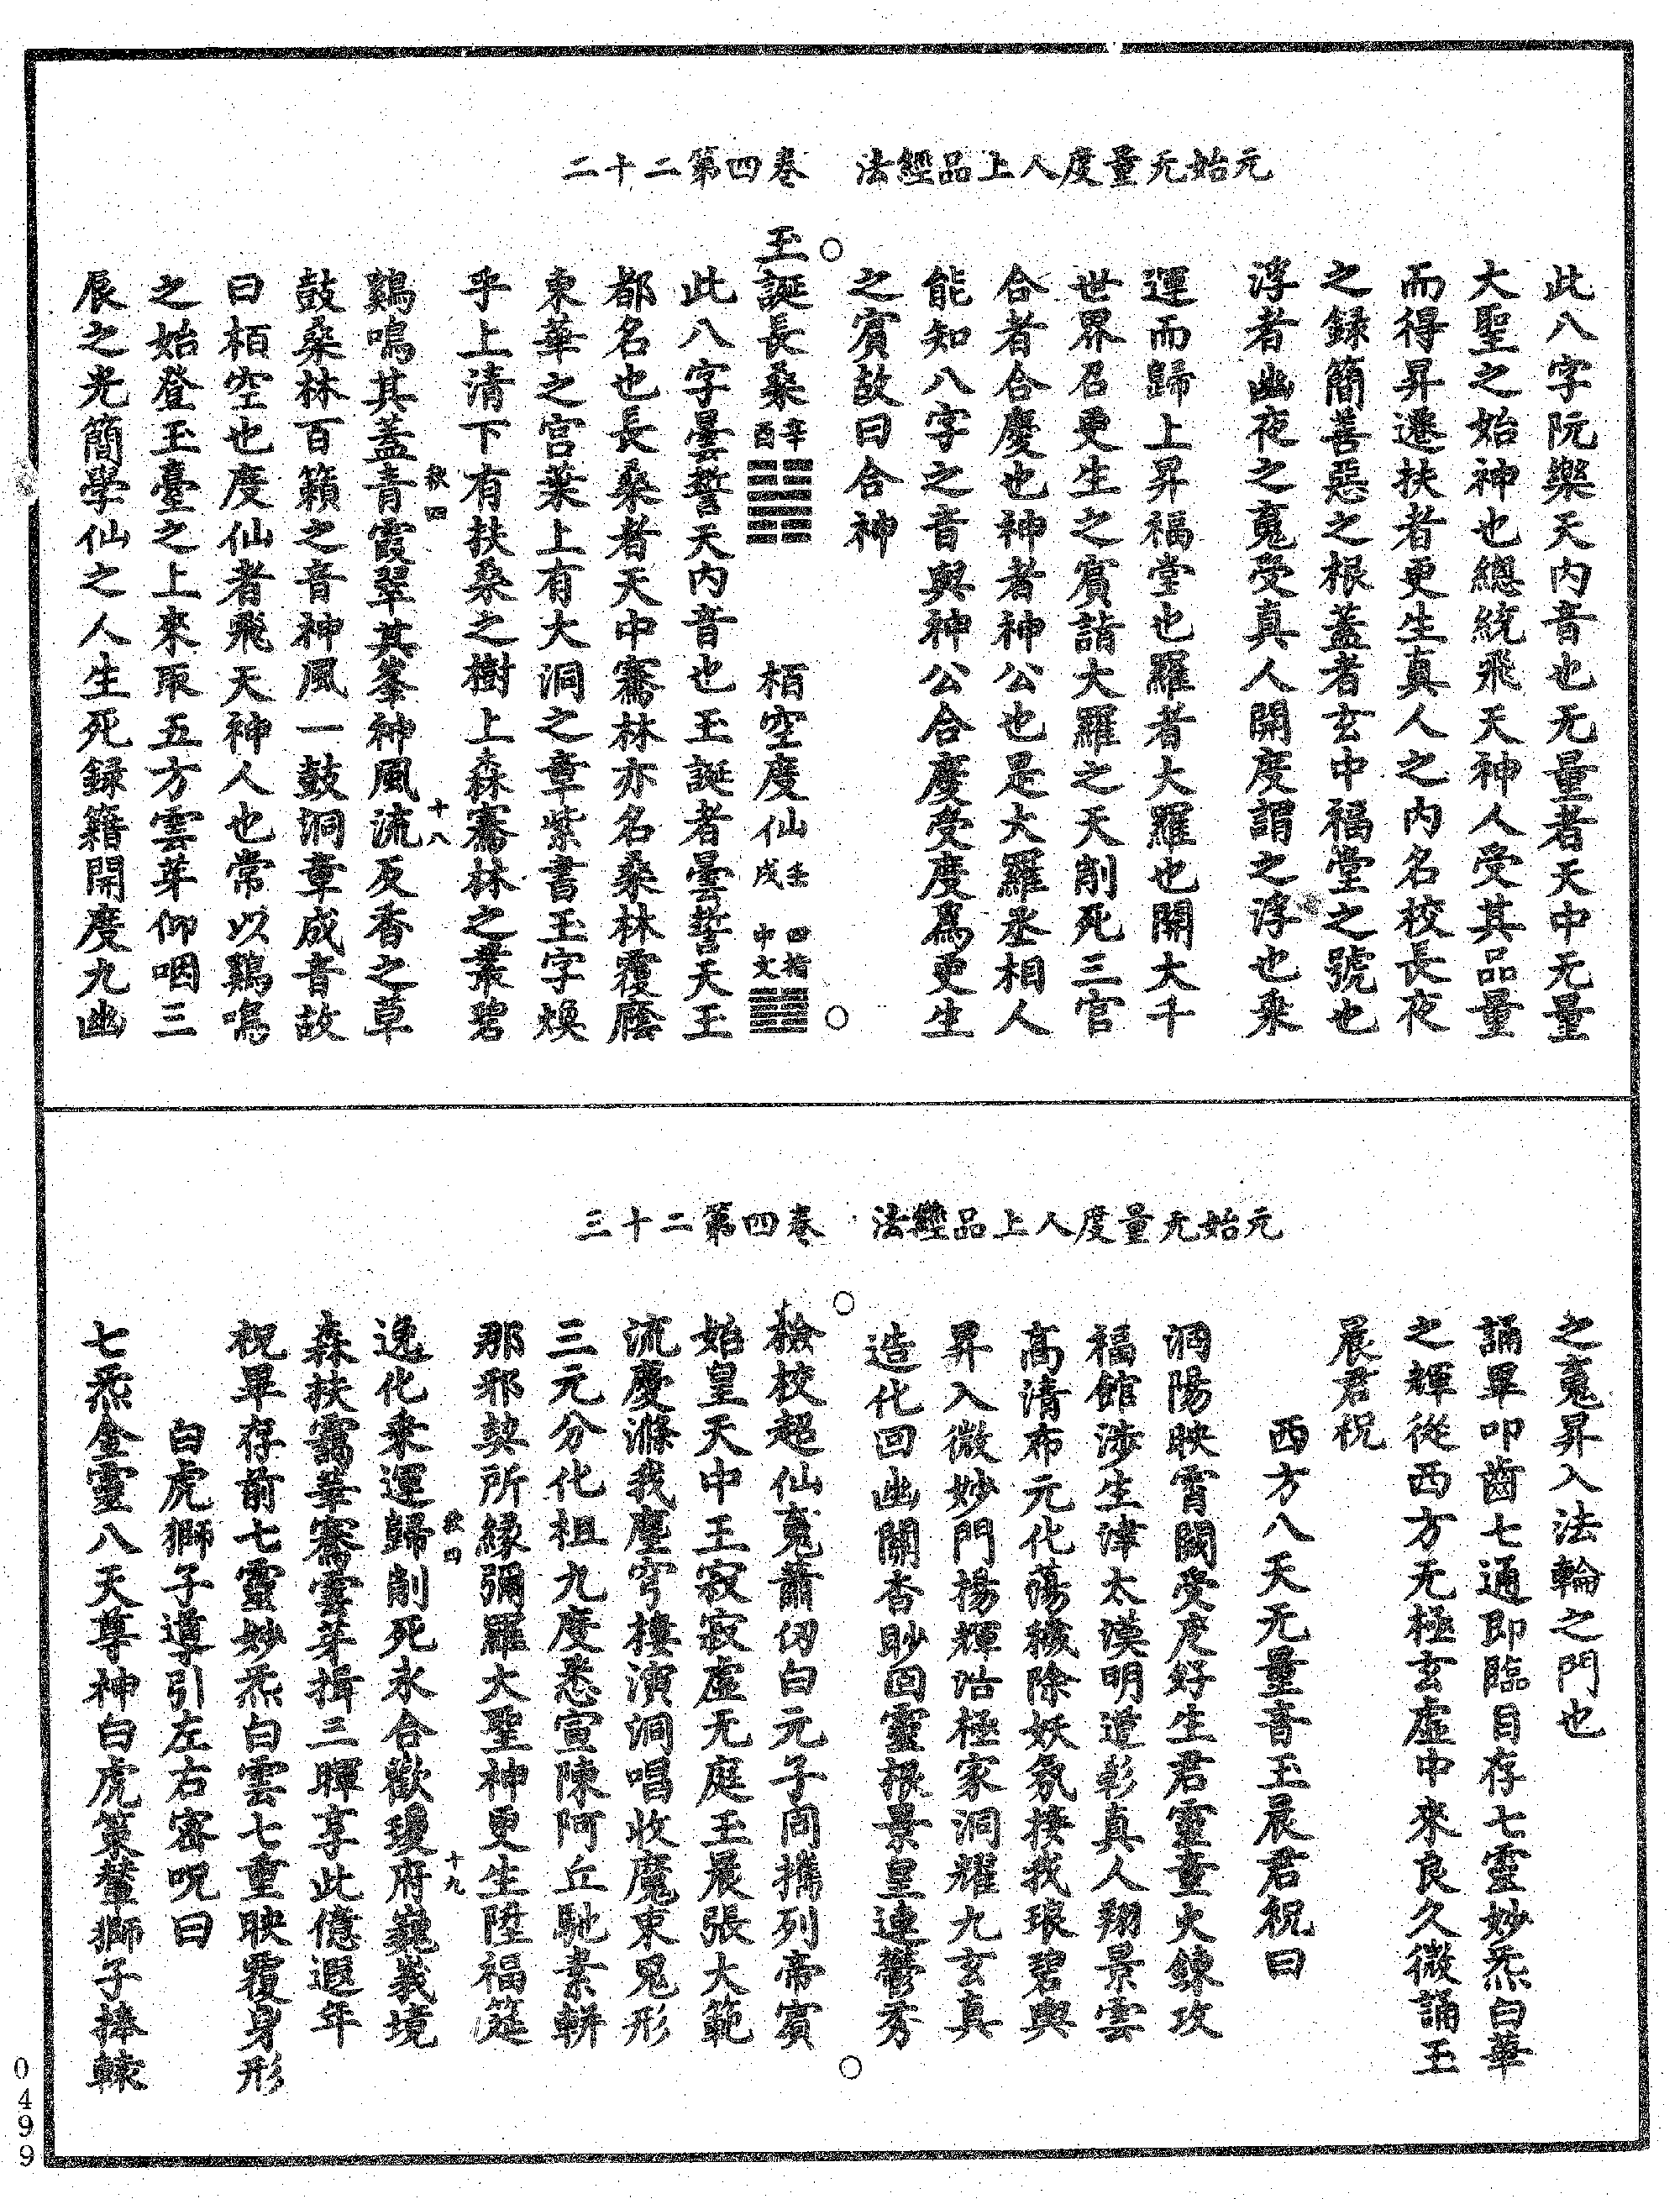 元始无量度人上品經法　卷四第二十二
此八字阮樂天內音也无量者天中无量
大聖之始神也總統飛天神人受其品量
而得昇遷扶者更生真人之內名校長夜
之録簡善惡之根蓋者玄中福堂之號也
浮者幽夜之䰟受真人開度謂之浮也乗
運而歸上昇福堂也羅者大羅也開大千
世界召更生之賓詣大羅之天削死三官
合者合慶也神者神公也是大羅丞相人
能知八字之音與神公合慶受度爲更生
之賓故曰合神
玉誕長桑 辛酉　栢空度仙 壬戌　四揩中文
此八字曇誓天內音也玉誕者曇誓天玉
都名也長桑者天中騫林亦名桑林覆䕃
東華之宮葉上有大洞之章紫書玉字煥
乎上清下有扶桑之樹上森騫林之叢碧
欸四　十八
鷄鳴其蓋青霞翠其峯神風流反香之草
鼓桑林百籟之音神風一鼓洞章成音故
曰栢空也度仙者飛天神人也常以鷄鳴
之始登玉臺之上來取五方雲芽仰咽三
辰之光簡學仙之人生死録籍開度九幽
元始无量度人上品經法　卷四第二十三
之䰟昇入法輪之門也
誦畢叩齒七通即臨目存七靈妙炁白華
之輝從西方无極玄虛中來良久微誦玉
晨君祝
西方八天无量音玉晨君祝曰
洞陽映霄閡受度好生君靈童火鍊攻
福館涉生津太漢明道彰真人翔景雲
高清布元化蕩穢除妖氛接我琅碧輿
昇入微妙門揚輝浩極家洞耀九玄真
造化回幽關杳眇回靈根景皇連欝秀
檢校超仙䰟蕭仞白元子問攜列帝賓
始皇天中王寂寂虛无庭玉晨張大範
流慶滌我塵穹樓演洞唱收魔束鬼形
三元分化祖九度悉宣陳阿丘馳素軿
那邪契所緣彌羅大聖神更生陞福筵
欸四　十九
逸化乗運歸削死永合歡瓊府巍峩境
森扶靄華騫雲芽揖三暉享此億遐年
祝畢存前七靈妙炁白雲七重映覆身形
白虎獅子導引左右密呪曰
七炁金靈八天尊神白虎策輦獅子捧轅
0499